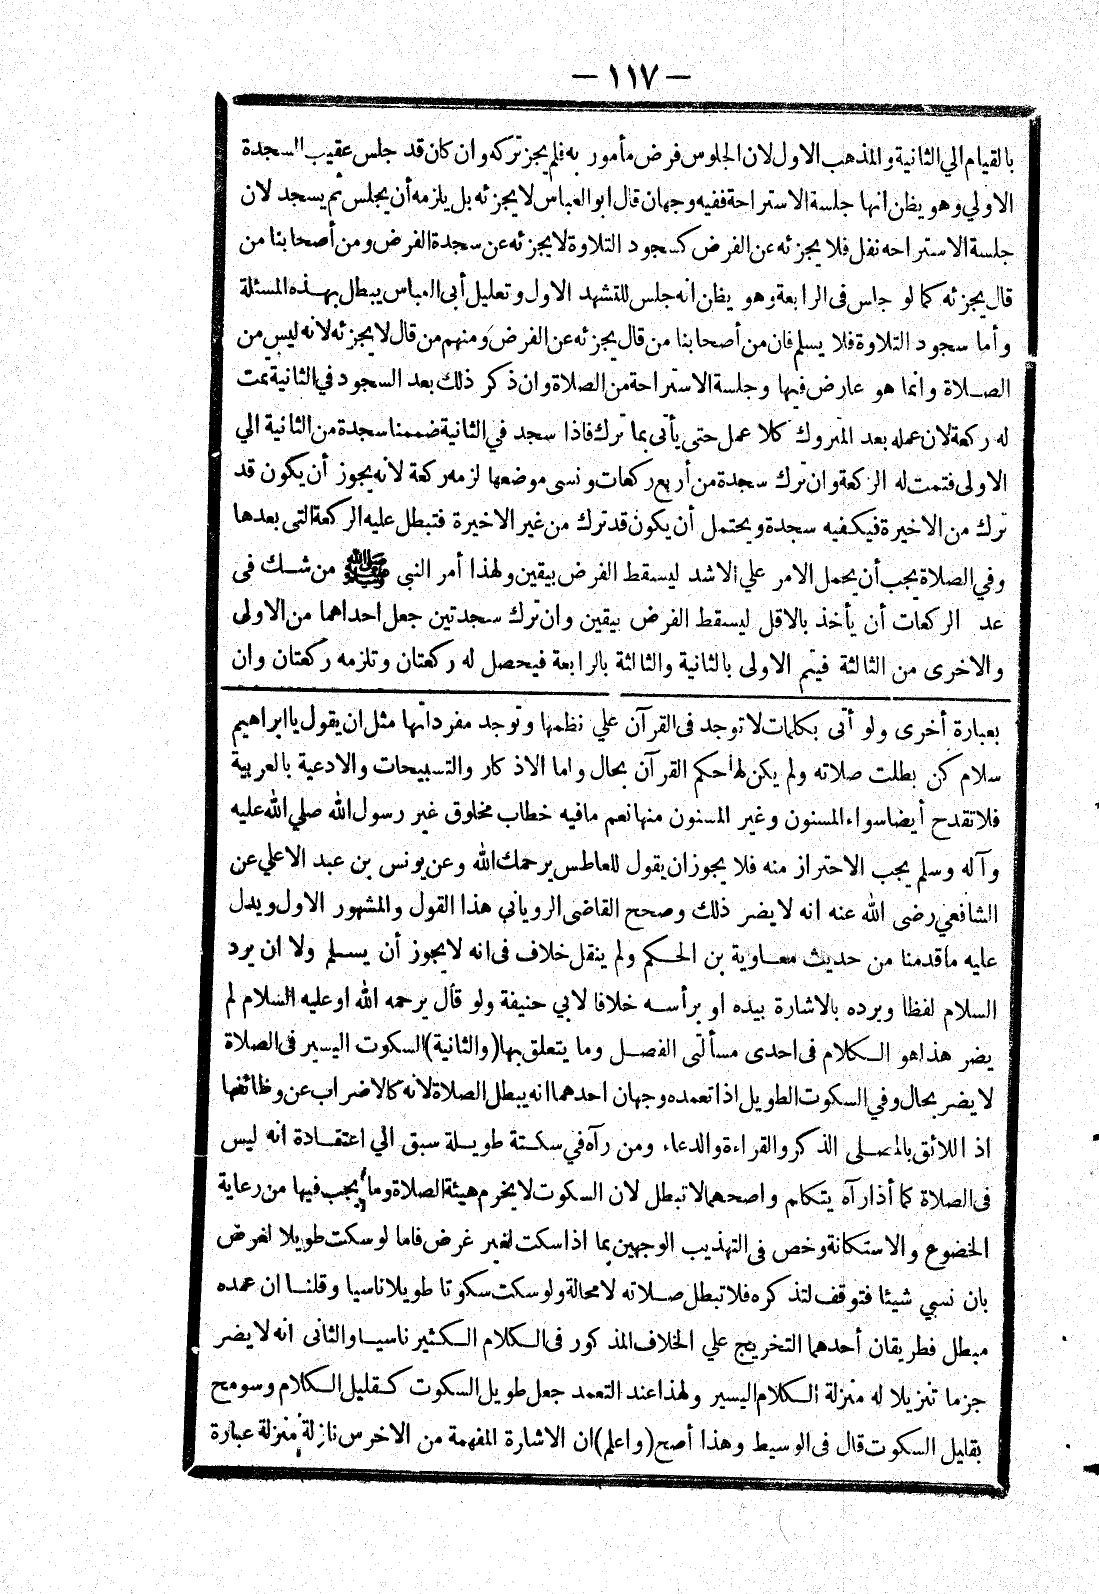 — ١١٧ —
بالقيام الي الثانية والمذهب الاول لان الجلوس فرض مأمور به فلم يجز تركه وان كان قد جلس عقيب السجدة
الاولي وهو يظن انها جلسة الاستراحة ففيه وجهان قال ابو العباس لا يجزئه بل يلزمه أن يجلس ثم يسجد لان
جلسة الاستراحه نفل فلا يجزئه عن الفرض كسجود التلاوة لا يجزئه عن سجدة الفرض ومن أصحابنا من
قال يجزئه كما لو جاس فى الرابعة وهو يظن انه جلس للتشهد الاول وتعليل أبى العباس يبطل بهذه المسئلة
وأما سجود التلاوة فلا يسلم فان من أصحابنا من قال يجزئه عن الفرض ومنهم من قال لا يجزئه لانه ليس من
الصلاة وانما هو عارض فيها وجلسة الاستراحة من الصلاة وان ذكر ذلك بعد السجود في الثانية تمت
له ركعة لان عمله بعد المتروك كلا عمل حتى يأتى بما ترك فاذا سجد في الثانية ضممنا سجدة من الثانية الي
الاولى فتمت له الركعة وان ترك سجدة من أربع ركعات ونسى موضعها لزمه ركعة لانه يجوز أن يكون قد
ترك من الاخيرة فيكفيه سجدة ويحتمل أن يكون قد ترك من غير الاخيرة فتبطل عليه الركعة التى بعدها
وفي الصلاة يجب أن يحمل الامر علي الاشد ليسقط الفرض بيقين ولهذا أمر النبى ﷺ من شك فى
عد الركعات أن يأخذ بالاقل ليسقط الفرض بيقين وان ترك سجدتين جعل احداهما من الاولى
والاخرى من الثالثة فيتم الاولى بالثانية والثالثة بالرابعة فيحصل له ركعتان وتلزمه ركعتان وان
بعبارة أخرى ولو أتى بكلمات لا توجد فى القرآن علي نظمها وتوجد مفرداتها مثل ان يقول يا ابراهيم
سلام كن بطلت صلاته ولم يكن لها حكم القرآن بحال واما الاذ كار والتسبيحات والادعية بالعربية
فلا تقدح أيضا سواء المسنون وغير المسنون منها نعم ما فيه خطاب مخلوق غير رسول الله صلي الله عليه
وآله وسلم يجب الاحتراز منه فلا يجوز ان يقول للعاطس يرحمك الله وعن يونس بن عبد الاعلي عن
الشافعي رضى الله عنه انه لا يضر ذلك وصحح القاضى الرويانى هذا القول والمشهور الاول ويدل
عليه ما قدمنا من حديث معاوية بن الحكم ولم ينقل خلاف فى انه لا يجوز أن يسلم ولا ان يرد
السلام لفظا ويرده بالاشارة بيده او برأسه خلافا لابي حنيفة ولو قال يرحمه الله او عليه السلام لم
يضر هذا هو الكلام فى احدى مسألتى الفصل وما يتعلق بها (والثانية) السكوت اليسير فى الصلاة
لا يضر بحال وفي السكوت الطويل اذا تعمده وجهان احدهما انه يبطل الصلاة لانه كالاضراب عن وظائفها
اذ اللائق بالمصلى الذكر والقراءة والدعاء ومن رآه في سكتة طويلة سبق الي اعتقادة انه ليس
فى الصلاة كما أذا رآه يتكلم واصحهما لا تبطل لان السكوت لا يخرم هيئة الصلاة وما يجب فيها من رعاية
الخضوع والاستكانة وخص فى التهذيب الوجهين بما اذا سكت لغير غرض فاما لو سكت طويلا لغرض
بان نسي شيئا فتوقف لتذكره فلا تبطل صلاته لا محالة ولو سكت سكوتا طويلا ناسيا وقلنا ان عمده
مبطل فطريقان أحدهما التخريج علي الخلاف المذكور فى الكلام الكثير ناسيا والثانى انه لا يضر
جزما تنزيلا له منزلة الكلام اليسير ولهذا عند التعمد جعل طويل السكوت كقليل الكلام وسومح
بقليل السكوت قال فى الوسيط وهذا أصح (واعلم) ان الاشارة المفهمة من الاخرس نازلة منزلة عبارة